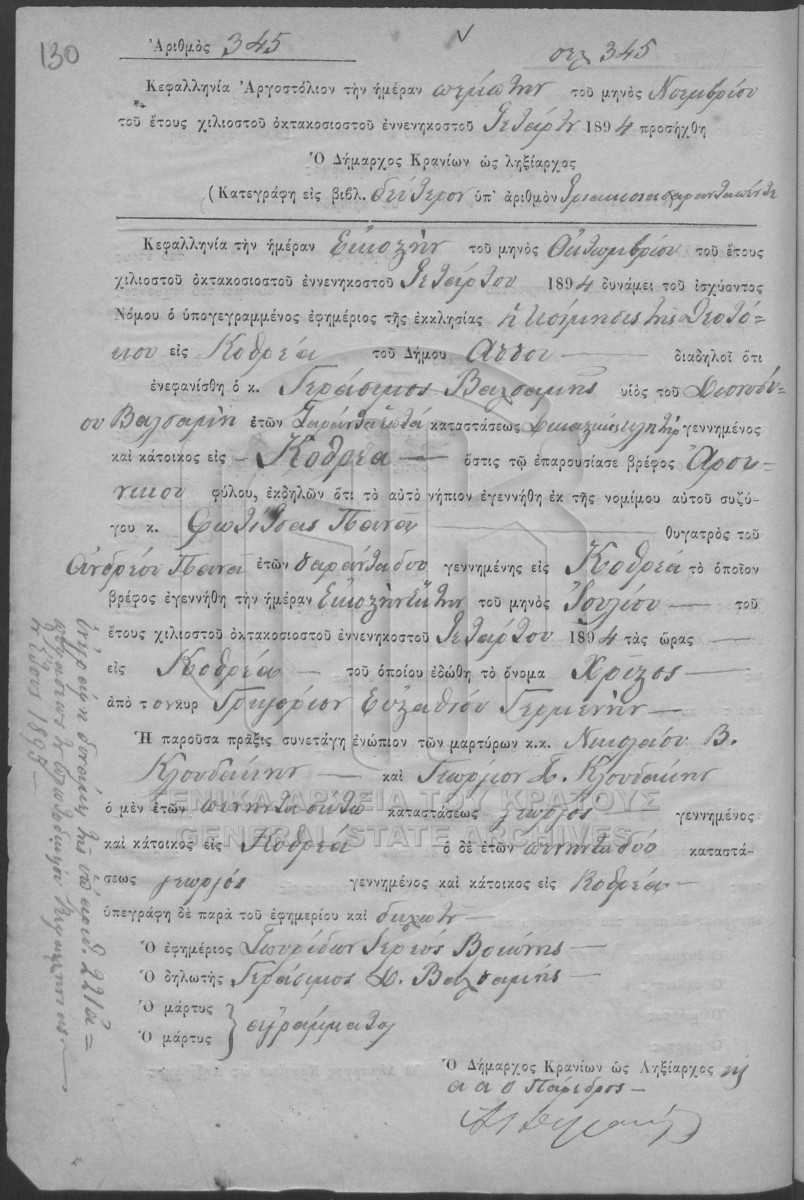 130
Ἀριθμὸς 345 σελ 345
Κεφαλληνία Ἀργοστόλιον τὴν ἡμέραν πέμπτην τοῦ μηνὸς Νοεμβρίου
τοῦ ἔτους χιλιοστοῦ ὀκτακοσιοστοῦ ἐννενηκοστοῦ τετάρτου 1894 προσήχθη
Ὁ Δήμαρχος Κρανίων ὡς ληξίαρχος
(Κατεγράφη εἰς βιβλ. δεύτερον ὑπ' ἀριθμὸν τριακόσια σαράντα πέντε
Κεφαλληνία τὴν ἡμέραν Εἰκοστὴν τοῦ μηνὸς Ὀκτωμβρίου τοῦ ἔτους
χιλιοστοῦ ὀκτακοσιοστοῦ ἐννενηκοστοῦ τετάρτου 1894 δυνάμει τοῦ ἰσχύοντος
Νόμου ὁ ὑπογεγραμμένος ἐφημέριος τῆς ἐκκλησίας ἡ Κοίμησις τῆς Θεοτό-
κου εἰς Κοθρέα τοῦ Δήμου Ἀσσου διαδηλοῖ ὅτι
ἐνεφανίσθη ὁ κ. Γεράσιμος Βαλσαμῆς υἱὸς τοῦ Διονυσί-
ου Βαλσαμῆ ἐτῶν σαράντα ἑπτά καταστάσεως Δικαστικὸς κλητήρ γεννημένος
καὶ κάτοικος εἰς Κοθρέα ὅστις τῷ ἐπαρουσίασε βρέφος Ἀρσε-
νικοῦ φύλου, ἐκδηλῶν ὅτι τὸ αὐτὸ νήπιον ἐγεννήθη ἐκ τῆς νομίμου αὐτοῦ συζύ-
γου κ. Φωτεινῆς Πανᾶ θυγατρὸς τοῦ
Ἀνδρέου Πανᾶ ἐτῶν σαράντα δύο γεννημένης εἰς Κοθρέα τὸ ὁποῖον
βρέφος ἐγεννήθη τὴν ἡμέραν Εἰκοστὴν ἕκτην τοῦ μηνὸς Ἰουλίου τοῦ
ἔτους χιλιοστοῦ ὀκτακοσιοστοῦ ἐννενηκοστοῦ τετάρτου 1894 τὰς ὥρας
εἰς Κοθρέα τοῦ ὁποίου ἐδώθη τὸ ὄνομα Χρῖζος
ἀπὸ τονκυρ Γρηγόριον Εὐσταθίου Γερμενῆν
Ἡ παροῦσα πρᾶξις συνετάγη ἐνώπιον τῶν μαρτύρων κ.κ. Νικολάου Β.
Κλουδάκην καὶ Γεώργιον Δ. Κλουδάκην
ὁ μὲν ἐτῶν πενήντα ὀκτώ καταστάσεως γεωργός γεννημένος
καὶ κάτοικος εἰς Κοθρέα ὁ δὲ ἐτῶν πενήντα δυό καταστά-
σεως γεωργός γεννημένος καὶ κάτοικος εἰς Κοθρέα
ὑπεγράφη δὲ παρὰ τοῦ ἐφημερίου καὶ δηλωτὴν
Ὁ ἐφημέριος Σπυρίδων Ἱερεύς
Ὁ δηλωτὴς Γεράσιμος Δ. Βαλσαμῆς
Ὁ μάρτυς
Ὁ μάρτυς } ἀγράμματοι
Ὁ Δήμαρχος Κρανίων ὡς Ληξίαρχος
α α ὁ Πάρεδρος
ΓΕΝΙΚΑ ΑΡΧΕΙΑ ΤΟΥ ΚΡΑΤΟΥΣ
GENERAL STATE ARCHIVES